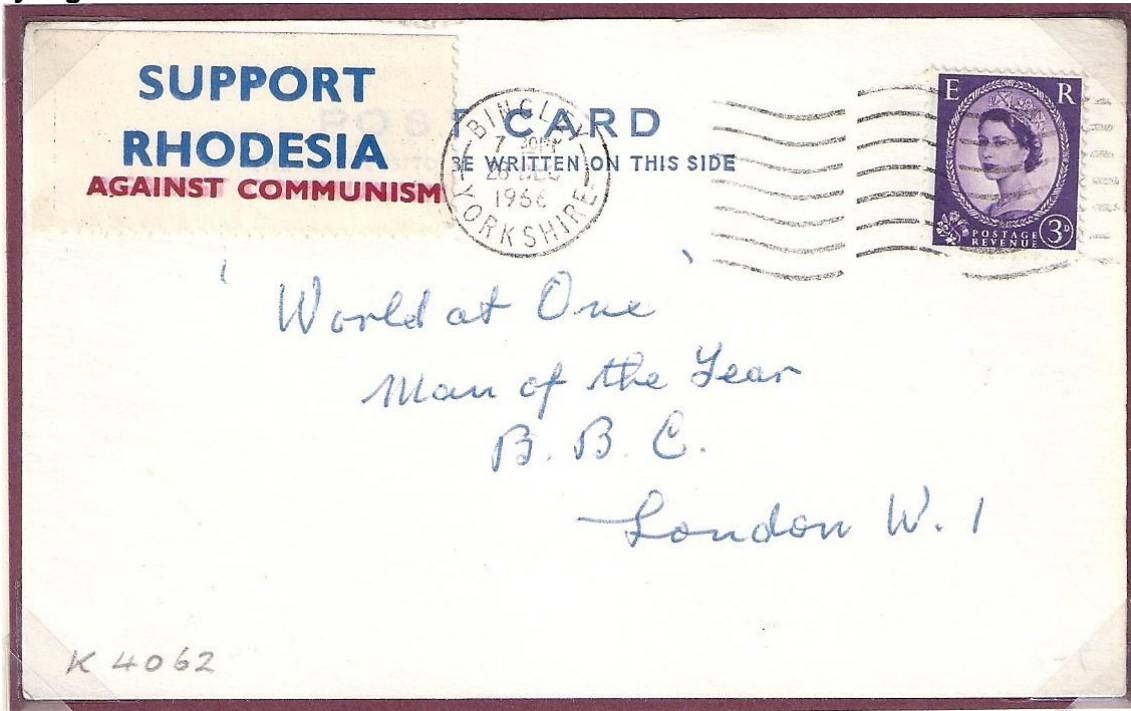 SUPPORT
RHODESIA
AGAINST COMMUNISM
POST CARD
BE WRITTEN ON THIS SIDE
BINGLEY
YORKSHIRE
1966
E R
POSTAGE
REVENUE
3D
'World at One'
Man of the Year
B. B. C.
London W. 1
K 4062